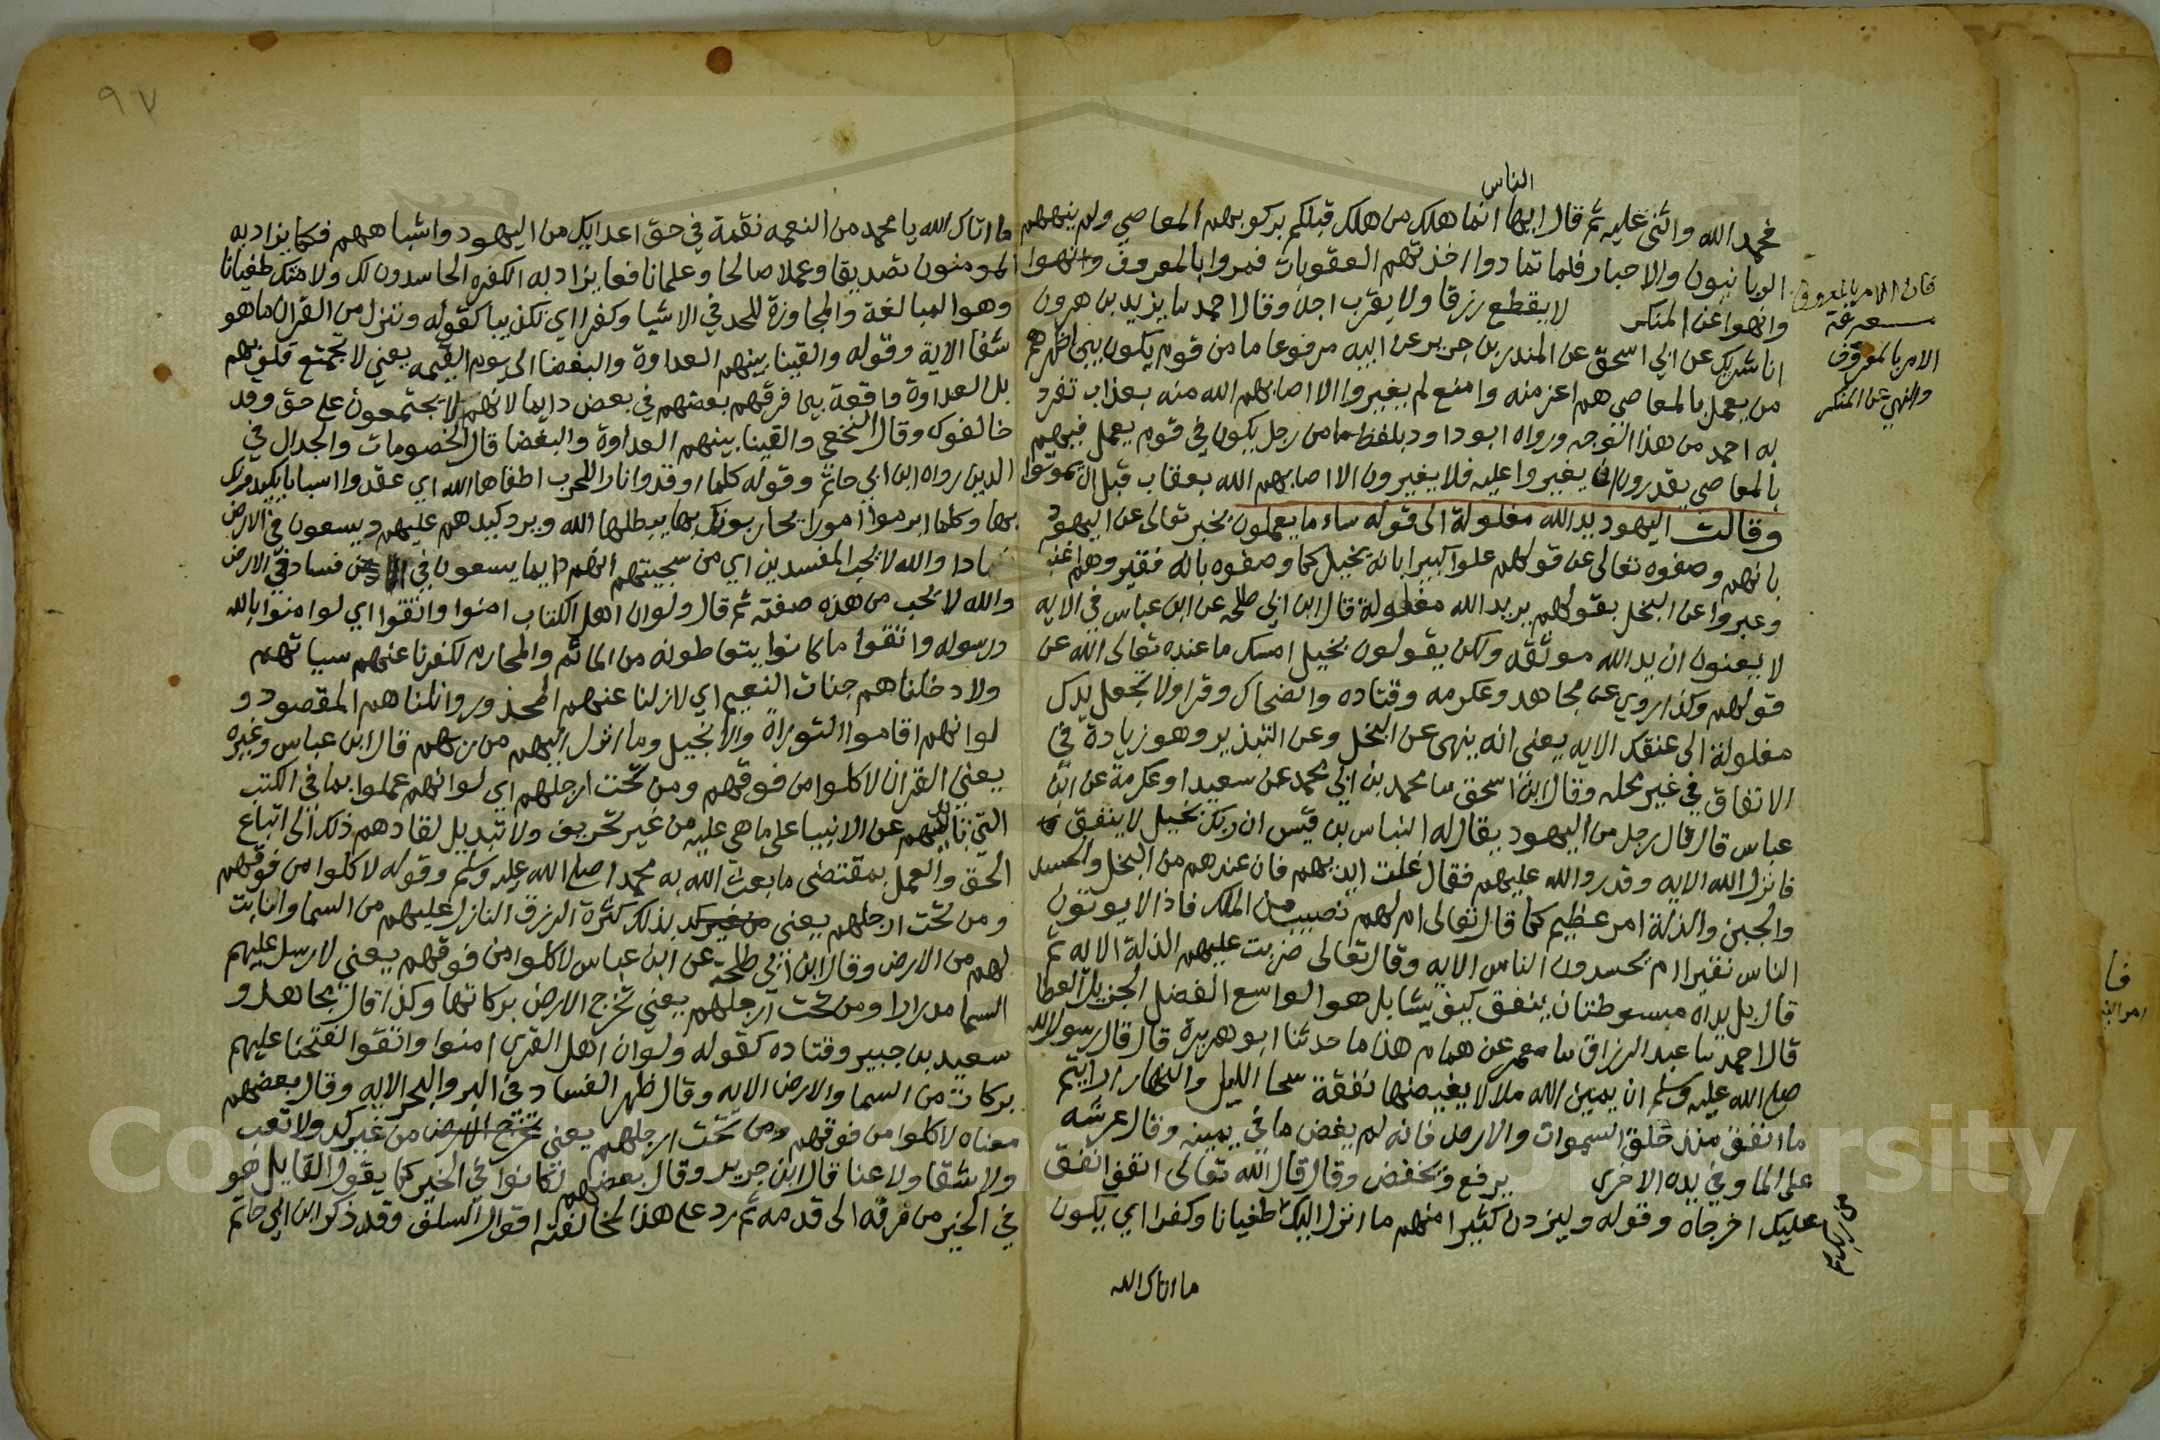 الناس
فحمد الله واثنى عليه ثم قال ايها انما هلك من هلك قبلكم بركوبهم المعاصي ولم ينههم
الربانيون والاحبار فلما تمادوا اخذتهم العقوبات فمروا بالمعروف وانهوا
وانهوا عن المنكر لا يقطع رزقا ولا يقرب اجلا وقال احمد سا يزيد بن هرون
انا شريك عن ابي اسحق عن المنذر بن جرير عن ابيه مرفوعا ما من قوم يكون بين اظهرهم
من يعمل بالمعاصي هم اعز منه وامنع لم يغيروا الا اصابهم الله منه بعذاب تفرد
به احمد من هذا الوجه ورواه ابو داود بلفظ ما من رجل يكون في قوم يعمل فيهم
بالمعاصي يقدرون ان يغيروا عليه فلا يغيرون الا اصابهم الله بعقاب قبل ان يموتوا
وقالت اليهود يد الله مغلولة الى قوله ساء ما يعملون يخبر تعالى عن اليهود
بانهم وصفوه تعالى عن قولهم علوا كبيرا بانه بخيل كما وصفوه بانه فقير وهم اغنيا
وعبروا عن البخل بقولهم يريد الله مغلولة قال ابن ابي طلحه عن ابن عباس في الايه
لا يعنون ان يد الله موثقه ولكن يقولون بخيل امسك ما عنده تعالى الله عن
قولهم وكذا روي عن مجاهد وعكرمه وقتاده والضحاك وقرا ولا تجعل يدك
مغلولة الى عنقك الايه يعني انه ينهى عن البخل وعن التبذير وهو زيادة في
الانفاق في غير محله وقال ابن اسحق سا محمد بن ابي محمد عن سعيد او عكرمة عن ابن
عباس قال قال رجل من اليهود يقال له النباس بن قيس ان ربك بخيل لا ينفق
فانزل الله الايه وقد رد الله عليهم فقال غلت ايديهم فان عندهم من البخل والحسد
والجبن والذلة امر عظيم كما قال تعالى ام لهم نصيب من الملك فاذا لا يوتون
الناس نقيرا ام يحسدون الناس الايه وقال تعالى ضربت عليهم الذلة الايه ثم
قال بل يداه مبسوطتان ينفق كيف يشا بل هو الواسع الفضل الجزيل العطا
قال احمد سا عبد الرزاق سا معمر عن همام هذا ما حدثنا ابو هريرة قال قال رسول الله
صلى الله عليه وسلم ان يمين الله ملا لا يغيضها نفقة سحا الليل والنهار ارايتم
ما انفق منذ خلق السموات والارض فانه لم يغض ما في يمينه وقال عرشه
على الما وفي يده الاخرى يرفع ويخفض وقال قال الله تعالى انفق انفق
عليك اخرجاه وقوله وليزدن كثيرا منهم ما انزل اليك طغيانا وكفرا اي يكون
من ربك
ما اتاك الله
فان الامر بالمعروف
الامر بالمعروف
والنهي عن المنكر
٩٧
ما اتاك الله يا محمد من النعمه نقمة في حق اعدايك من اليهود واشباههم فكما يزاد به
المومنون تصديقا وعملا صالحا وعلما نافعا يزاد به الكفره الحاسدون لك ولامتك طغيانا
وهو المبالغة والمجاوزة للحد في الاشيا وكفرا اي تكذيبا كقوله وننزل من القران ما هو
شفا الاية وقوله والقينا بينهم العداوة والبغضا الى يوم القيمه يعني لا تجتمع قلوبهم
بل العداوة واقعة بين فرقهم بعضهم في بعض دايما لانهم لا يجتمعون على حق وقد
خالفوك وقال النخعي والقينا بينهم العداوة والبغضا قال الخصومات والجدال في
الدين رواه ابن ابي حاتم وقوله كلما اوقدوا نارا للحرب اطفاها الله اي عقدوا اسبابا يكيدونك
بها وكلما ابرموا امورا يحاربونك بها يبطلها الله ويرد كيدهم عليهم ويسعون في الارض
فسادا والله لا يحب المفسدين اي من سجيتهم انهم دايما يسعون في فساد في الارض
والله لا يحب من هذه صفته ثم قال ولو ان اهل الكتاب امنوا واتقوا اي لو امنوا بالله
ورسوله واتقوا ما كانوا يتعاطونه من الماثم والمحارم لكفرنا عنهم سياتهم
ولادخلناهم جنات النعيم اي لازلنا عنهم المحذور وانلناهم المقصود و
لو انهم اقاموا التوراة والانجيل وما انزل اليهم من ربهم قال ابن عباس وغيره
يعني القران لاكلوا من فوقهم ومن تحت ارجلهم اي لو انهم عملوا بما في الكتب
التي بايديهم عن الانبيا على ما هي عليه من غير تحريف ولا تبديل لقادهم ذلك الى اتباع
الحق والعمل بمقتضى ما بعث الله به محمدا صلى الله عليه وسلم وقوله لاكلوا من فوقهم
ومن تحت ارجلهم يعني بذلك كثرة الرزق النازل عليهم من السما والنابت
لهم من الارض وقال ابن ابي طلحة عن ابن عباس لاكلوا من فوقهم يعني لارسل عليهم
السما مدرارا ومن تحت ارجلهم يعني تخرج الارض بركاتها وكذا قال مجاهد و
سعيد بن جبير وقتاده كقوله ولو ان اهل القرى امنوا واتقوا لفتحنا عليهم
بركات من السما والارض الايه وقال ظهر الفساد في البر والبحر الايه وقال بعضهم
معناه لاكلوا من فوقهم ومن تحت ارجلهم يعني من غير كد ولا تعب
ولا شقا ولا عنا قال ابن جرير وقال بعضهم لكانوا في الخير كما يقول القايل هو
في الخير من فرقه الى قدمه ثم رد على هذا لمخالفته اقوال السلف وقد ذكر ابن ابي حاتم